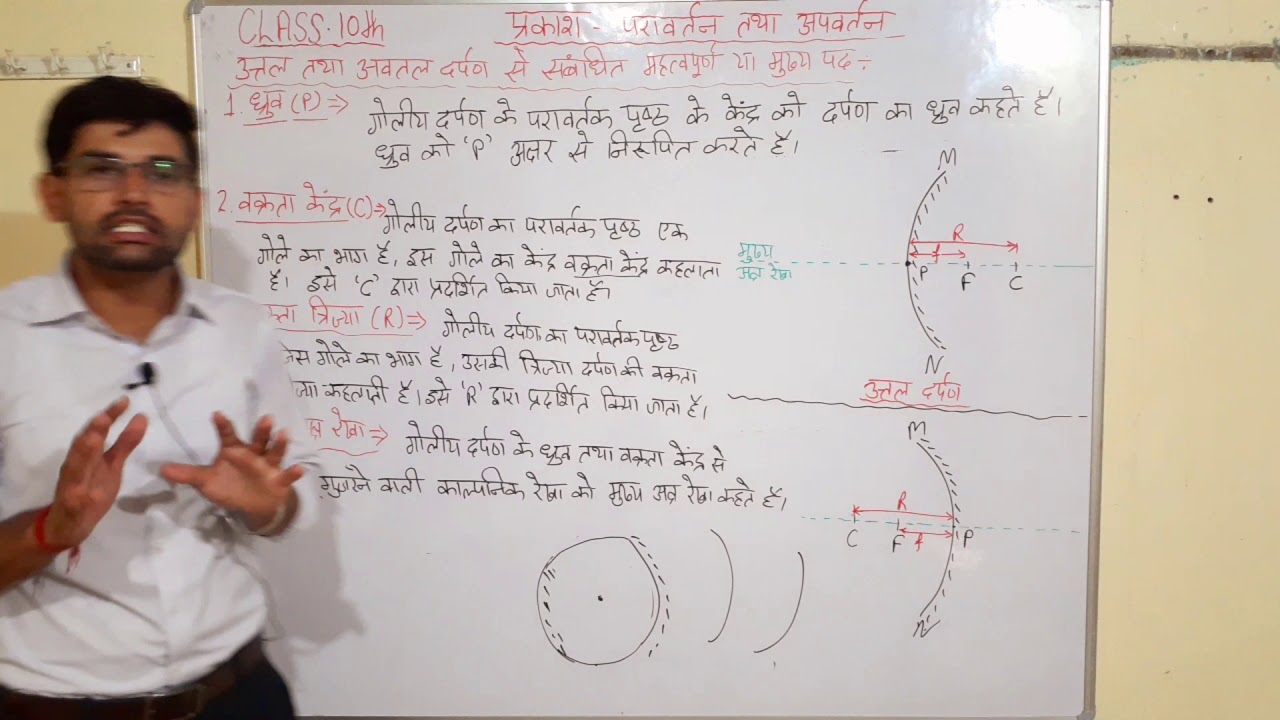 CLASS-10th
प्रकाश - परावर्तन तथा अपवर्तन
उत्तल तथा अवतल दर्पण से संबंधित महत्वपूर्ण या मुख्य पद ÷
1. ध्रुव (P) ⇒ गोलीय दर्पण के परावर्तक पृष्ठ के केंद्र को दर्पण का ध्रुव कहते हैं।
ध्रुव को 'P' अक्षर से निरूपित करते है।
2. वक्रता केंद्र (C) ⇒ गोलीय दर्पण का परावर्तक पृष्ठ एक
गोले का भाग है, इस गोले का केंद्र वक्रता केंद्र कहलाता
है। इसे 'C' द्वारा प्रदर्शित किया जाता है।
त्रिज्या (R) ⇒ गोलीय दर्पण का परावर्तक पृष्ठ
गोले का भाग है, उसकी त्रिज्या दर्पण की वक्रता
कहलाती है। इसे 'R' द्वारा प्रदर्शित किया जाता है।
रेखा ⇒ गोलीय दर्पण के ध्रुव तथा वक्रता केंद्र से
गुजरने वाली काल्पनिक रेखा को मुख्य अक्ष रेखा कहते है।
मुख्य
अक्ष रेखा
M
R
f
P F C
N
उत्तल दर्पण
M
R
f
C F P
N